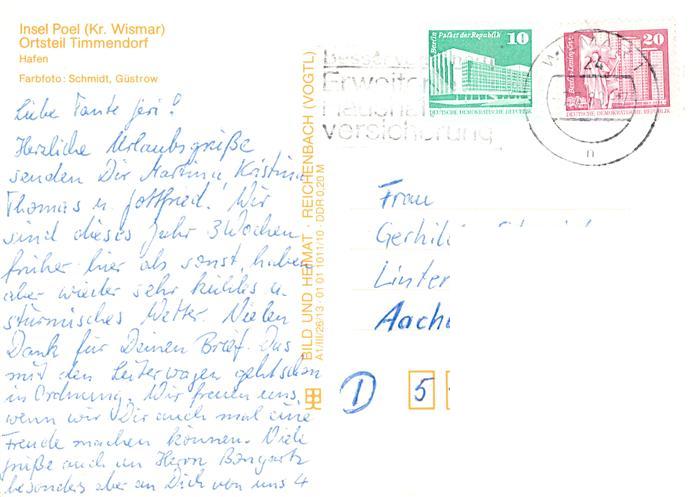 Insel Poel (Kr. Wismar)
Ortsteil Timmendorf
Hafen
Farbfoto: Schmidt, Güstrow
Liebe Tante Geri!
Herzliche Urlaubsgrüße
senden Dir Martina, Kristina,
Thomas u. Gottfried! Wir
sind dieses Jahr 3 Wochen
früher hier als sonst, haben
aber wieder sehr kühles u.
stürmisches Wetter. Vielen
Dank für Deinen Brief. Das
mit den Leiterwagen geht schon
in Ordnung. Wir freuen uns,
wenn wir Dir auch mal eine
Freude machen können. Viele
Grüße auch an Herrn Bongartz
besonders aber an Dich von uns 4
BILD UND HEIMAT · REICHENBACH (VOGTL)
A1/III/26/13 01 01 1011/10 · DDR 0,20 M
Berlin Palast der Republik
10
DEUTSCHE DEMOKRATISCHE REPUBLIK
20
DEUTSCHE DEMOKRATISCHE REPUBLIK
24
n
Erweiter
Haushal
versicherung
Frau
Gerhil
Linter
Aach
D 5